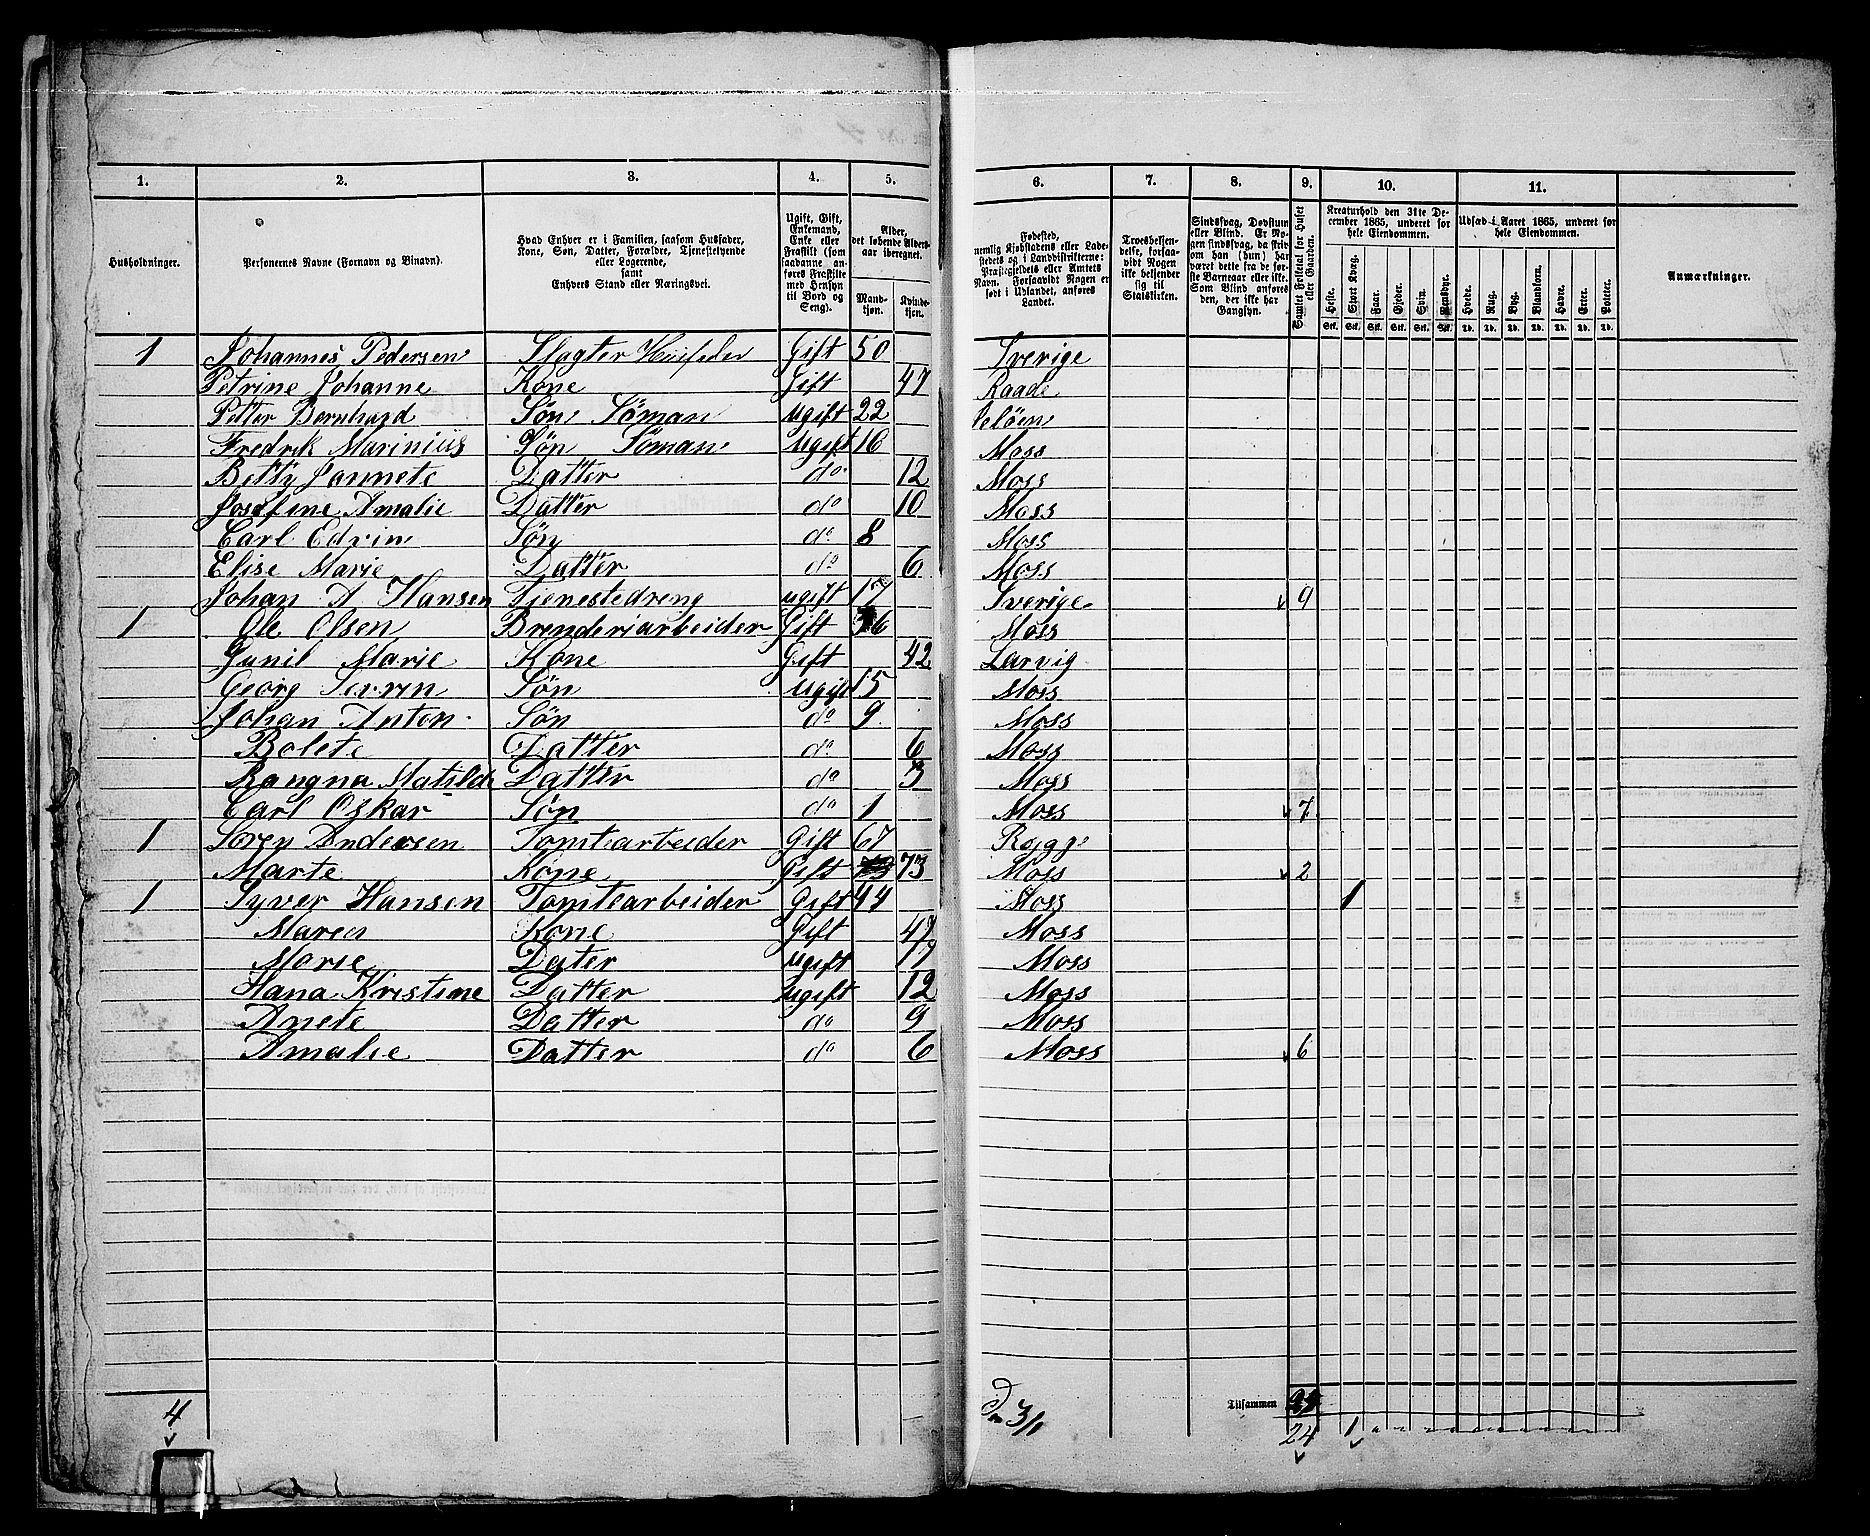 1. 2. 3. 4. 5. 6. 7. 8. 9. 10. 11.
Husholdninger.
Personernes Navne (Fornavn og Binavn).
Hvad Enhver er i Familien, saasom Husfader, Kone, Søn, Datter, Forældre, Tjenestetyende eller Logerende, samt Enhvers Stand eller Næringsvei.
Ugift, Gift, Enkemand, Enke eller Fraskilt (som saadanne anføres Fraskilte med Hensyn til Bord og Seng).
Alder, det løbende Alders-aar iberegnet.
Mand-kjøn. Kvinde-kjøn.
Fødested, nemlig Kjøbstadens eller Ladestedets og i Landdistrikterne: Præstegjeldets eller Amtets Navn. Forsaavidt Nogen er født i Udlandet, anføres Landet.
Troesbekjendelse, forsaavidt Nogen ikke bekjender sig til Statskirken.
Sindssvag, Døvstum eller Blind. Er Nogen sindssvag, da skriv om han (hun) har været dette fra de første Barneaar eller ikke. Som Blind anføres den, der ikke har Gangsyn.
Samlet Folketal for Huset eller Gaarden.
Kreaturhold den 31te December 1865, underet for hele Eiendommen.
Heste. Stort Kvæg. Faar. Gjeder. Svin. Rensdyr.
Udsæd i Aaret 1865, underet for hele Eiendommen.
Hvede. Rug. Byg. Blandkorn. Havre. Erter. Poteter.
Anmærkninger.
Stk. Stk. Stk. Stk. Stk. Stk. Td. Td. Td. Td. Td. Td. Td.
1 Johannes Pedersen Slagter Husfader Gift 50 Sverige
Petrine Johanne Kone Gift 47 Raade
Petter Bernhard Søn Söman ugift 22 Jeløen
Fredrik Marinius Søn Söman Ugift 16 Moss
Betty Jannete Datter do 12 Moss
Josefine Amalie Datter do 10 Moss
Carl Edvin Søn do 8 Moss
Elise Marie Datter do 6 Moss
Johan A Hansen Tjenestedreng ugift 17 Sverige 9
1 Ole Olsen Brenderiarbeider Gift 36 Moss
Gunil Marie Kone Gift 42 Larvig
Georg Sevrin Søn Ugift 15 Moss
Johan Anton Søn do 9 Moss
Bolete Datter do 6 Moss
Rangna Matilde Datter do 3 Moss
Carl Oskar Søn do 1 Moss 7
1 Soren Andersen Tomtearbeider Gift 67 Rygge
Marte Kone Gift 73 Moss 2
1 Syver Hansen Tomtearbeider Gift 44 Moss 1
Maren Kone Gift 47 Moss
Marie Dater ugift 17 Moss
Hana Kristine Datter Ugift 12 Moss
Anete Datter do 9 Moss
Amalie Datter do 6 Moss 6
Tilsammen
4 3/1 24 1